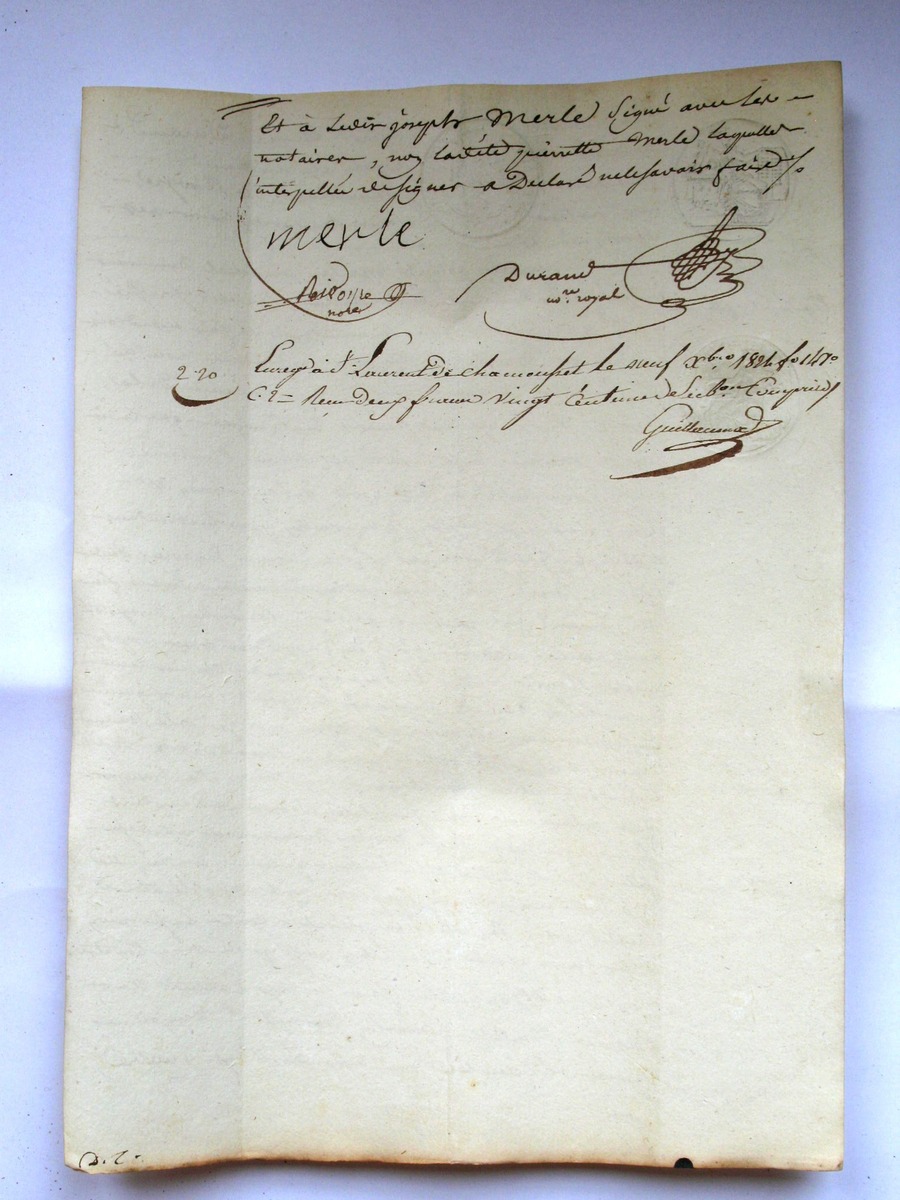 Et à Ledit joseph Merle Signé avec les
notaires, non ladite pierrette Merle laquelle
interpellée de signer a Déclaré ne le savoir faire
merle
Durand
nore royal
notre
2-20
Enregé à St Laurent de chamousset le neuf Xbre 1824 fo 147
C. 2 Reçu deux francs vingt Centimes de Subon Compris
Guillaumod